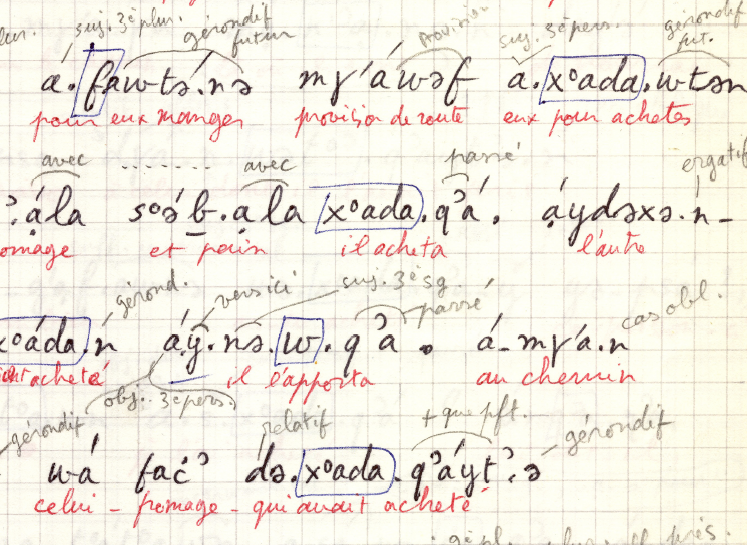 suj. 3è plur. gérondif futur provision suj. 3è pers. gérondif fut.
á. fawtə́.nə mɣ'áwəf a.x°ada.wtən
pour eux manger provision de route eux pour acheter
avec ........ avec passé ergatif
ʔ.ála s°ə́b.ala x°ada.qʾá. áydəxə.n-
omage et pain il acheta l'autre
gérond. vers ici suj. 3è sg. passé cas obl.
x°áda.n áy.nə.w.qʾa. á-mɣ'á.n
acheté il l'apporta au chemin
gérondif obj. 3è pers. relatif + que pft. gérondif
wá fač̓ də.x°ada.qʾáytʾ.ə
celui - fromage - qui avait acheté